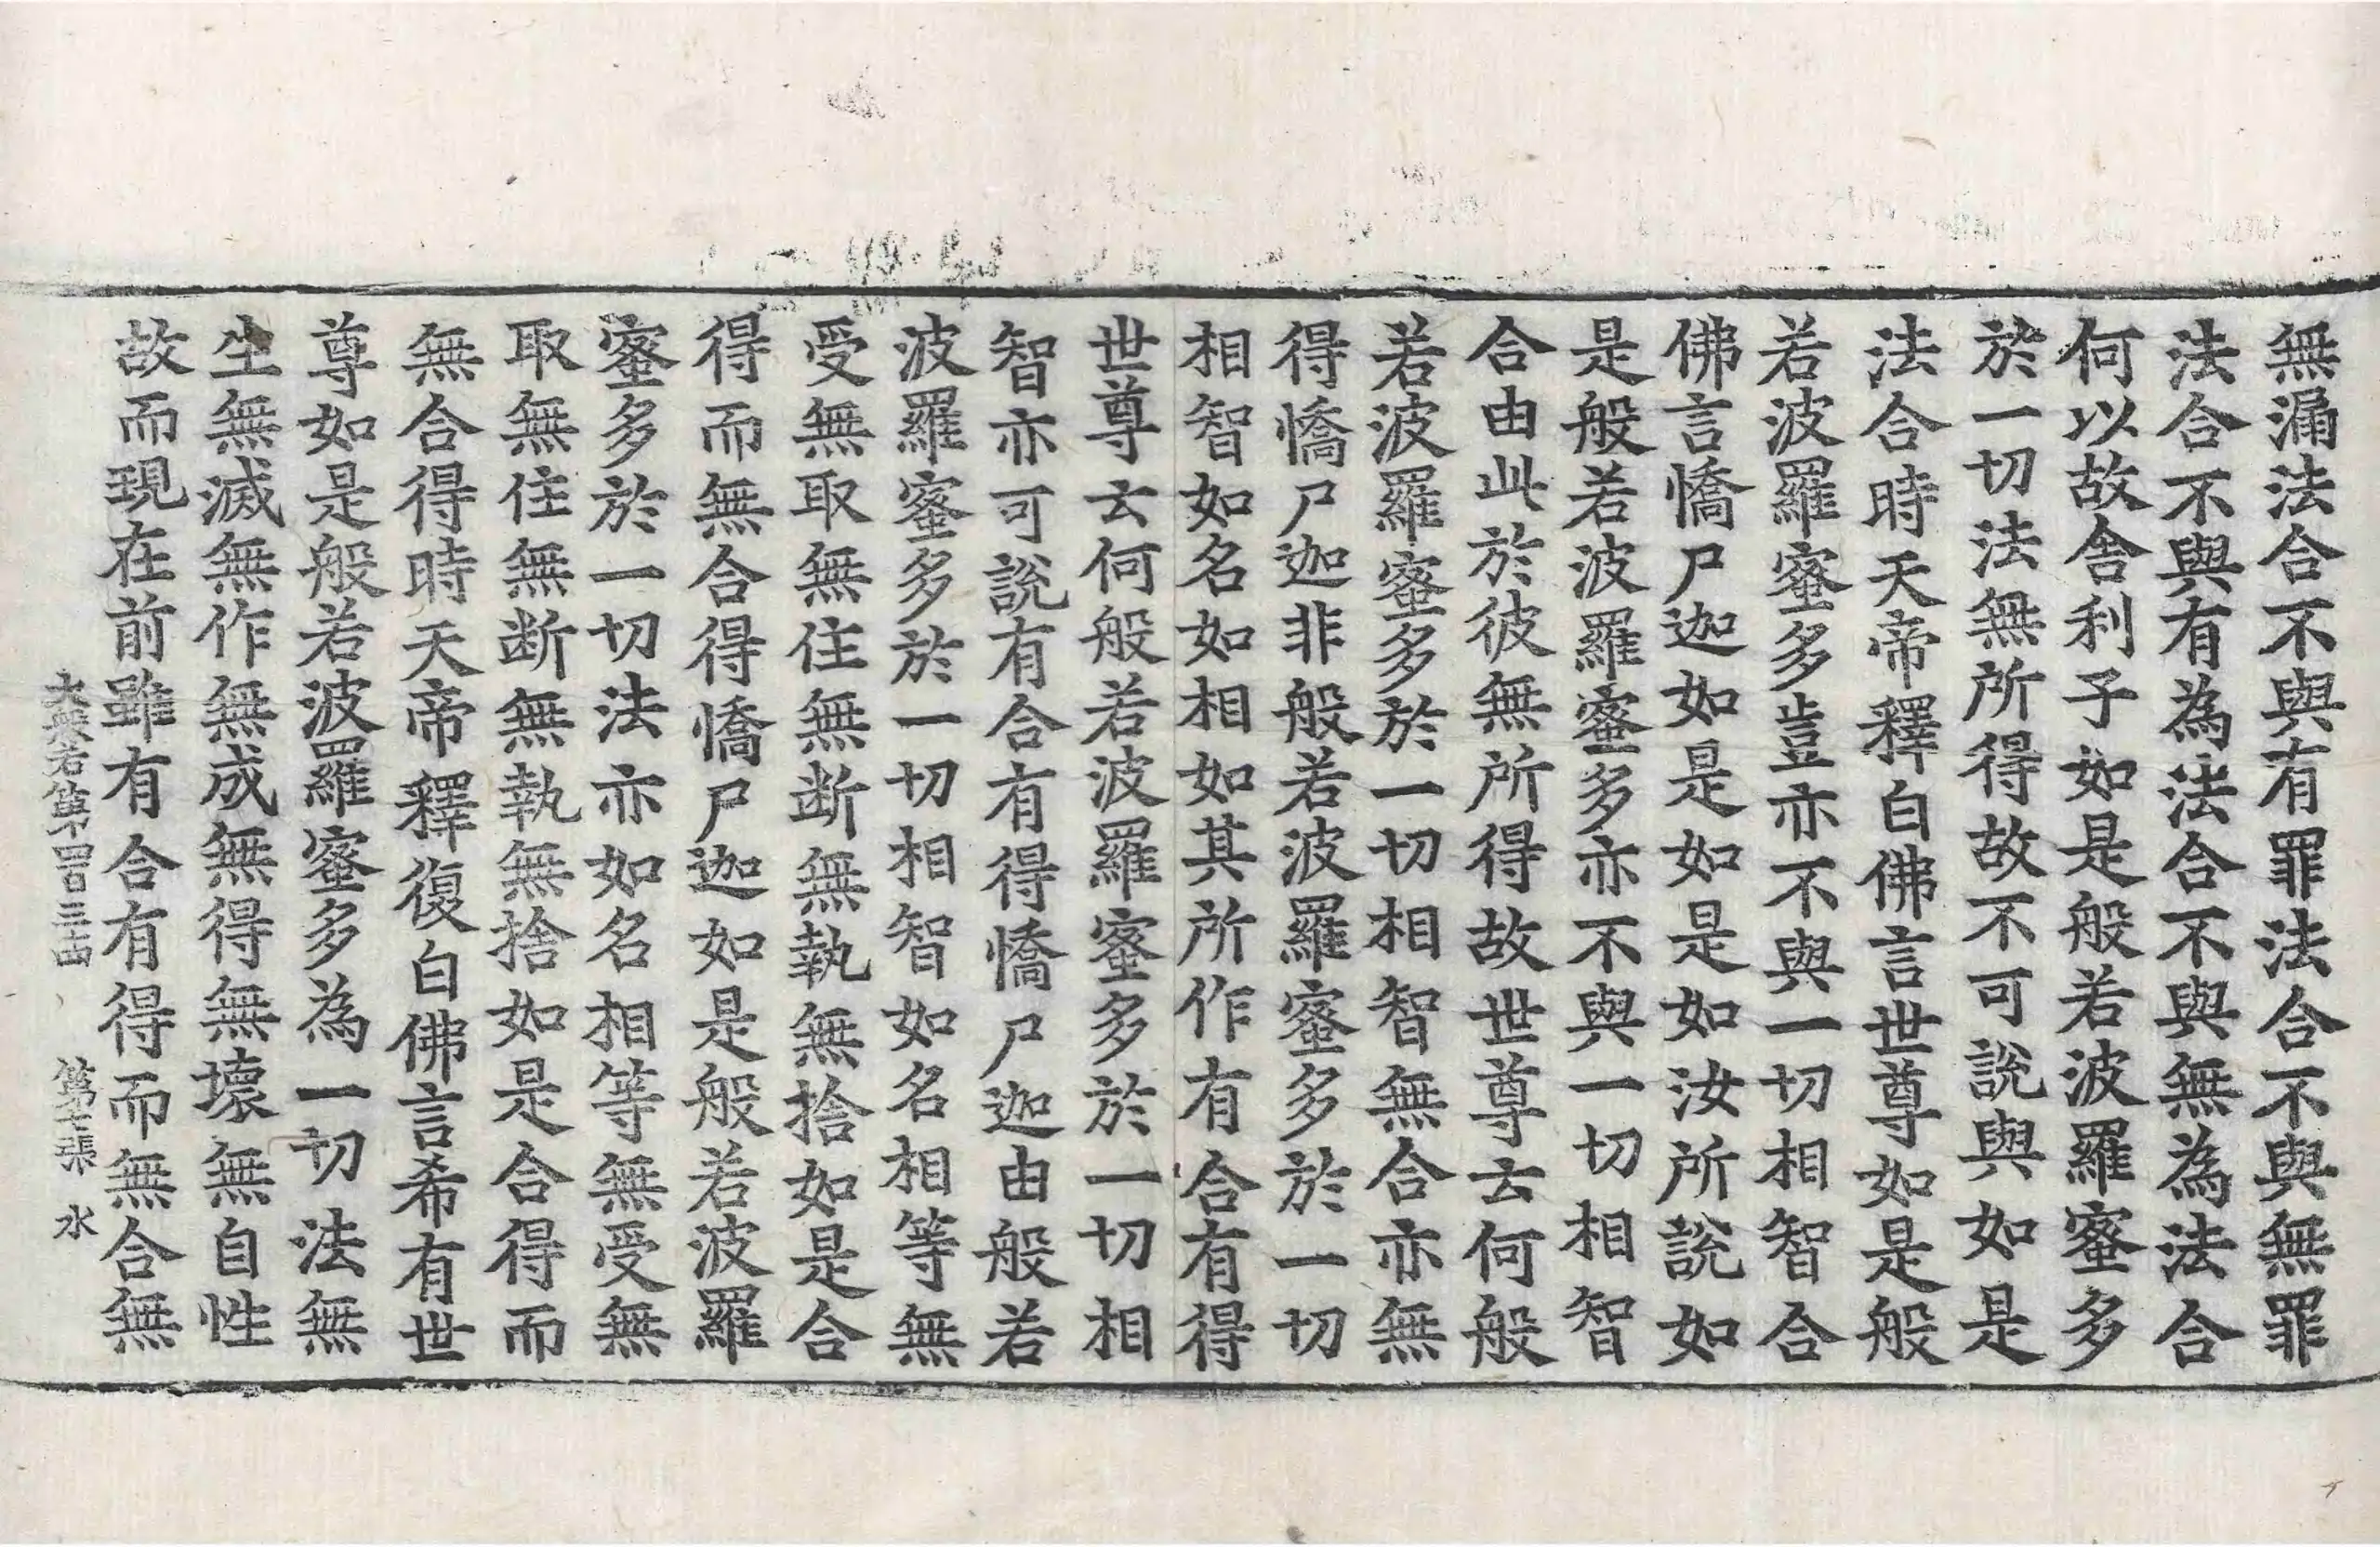 無漏法合不與有罪法合不與無罪
法合不與有為法合不與無為法合
何以故舎利子如是般若波羅蜜多
於一切法無所得故不可說與如是
法合時天帝釋白佛言世尊如是般
若波羅蜜多豈亦不與一切相智合
佛言憍尸迦如是如是如汝所說如
是般若波羅蜜多亦不與一切相智
合由此於彼無所得故世尊云何般
若波羅蜜多於一切相智無合亦無
得憍尸迦非般若波羅蜜多於一切
相智如名如相如其所作有合有得
世尊云何般若波羅蜜多於一切相
智亦可說有合有得憍尸迦由般若
波羅蜜多於一切相智如名相等無
受無取無住無断無執無捨如是合
得而無合得憍尸迦如是般若波羅
蜜多於一切法亦如名相等無受無
取無住無断無執無捨如是合得而
無合得時天帝釋復白佛言希有世
尊如是般若波羅蜜多為一切法無
生無滅無作無成無得無壞無自性
故而現在前雖有合有得而無合無
大般若第四百三十四 第七張 水